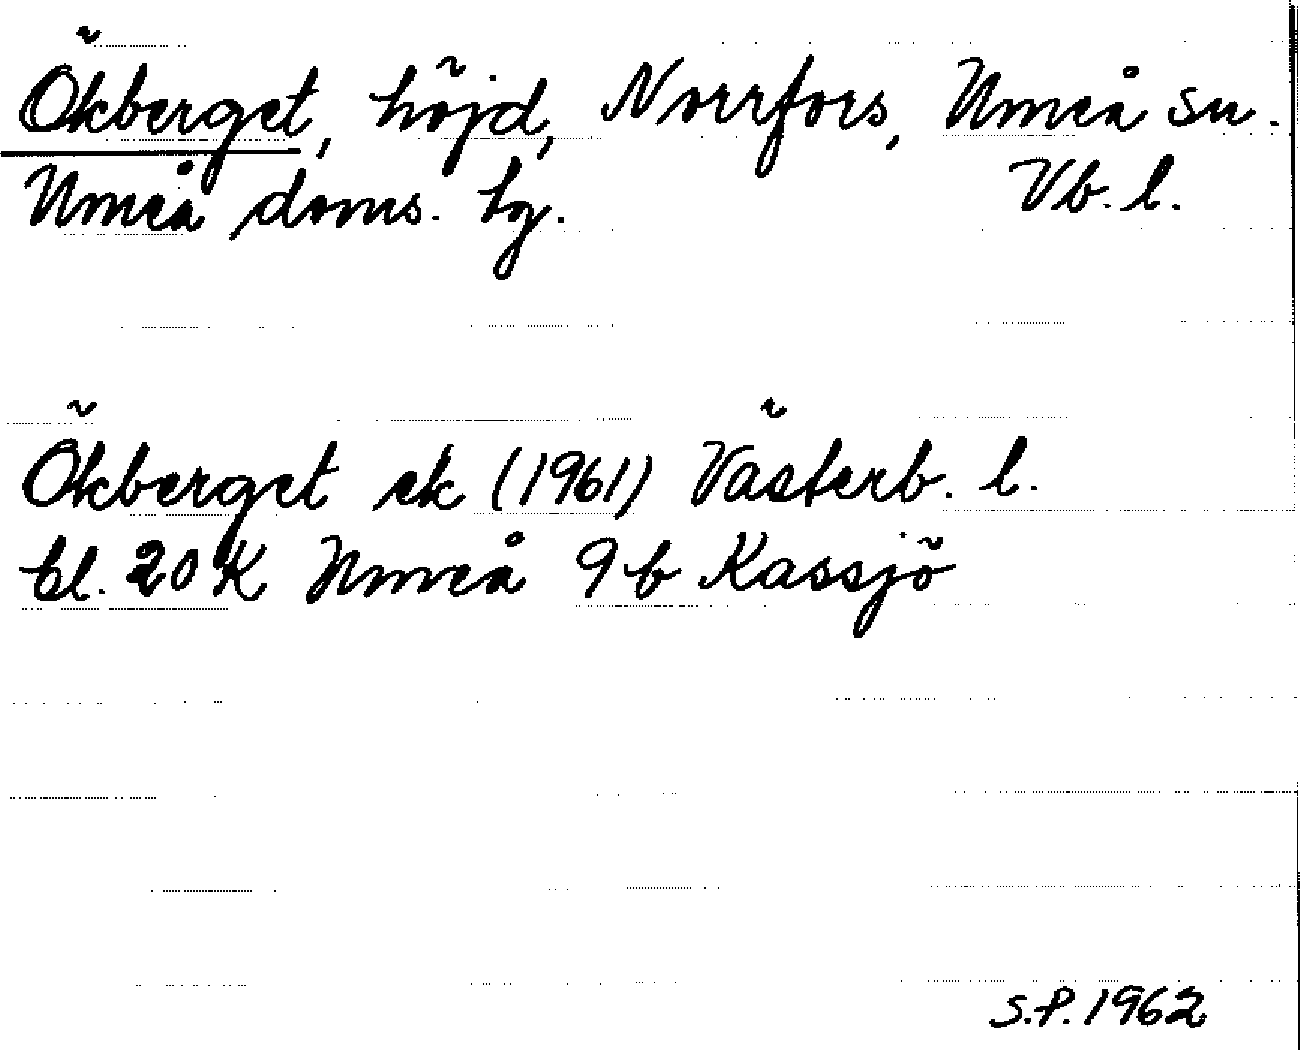 Ökberget, höjd, Norrfors, Umeå sn.
Umeå doms. tg. Vb. l.
Ökberget ek (1961) Västerb. l.
bl. 20 K Umeå 9 b Kassjö
S.P. 1962